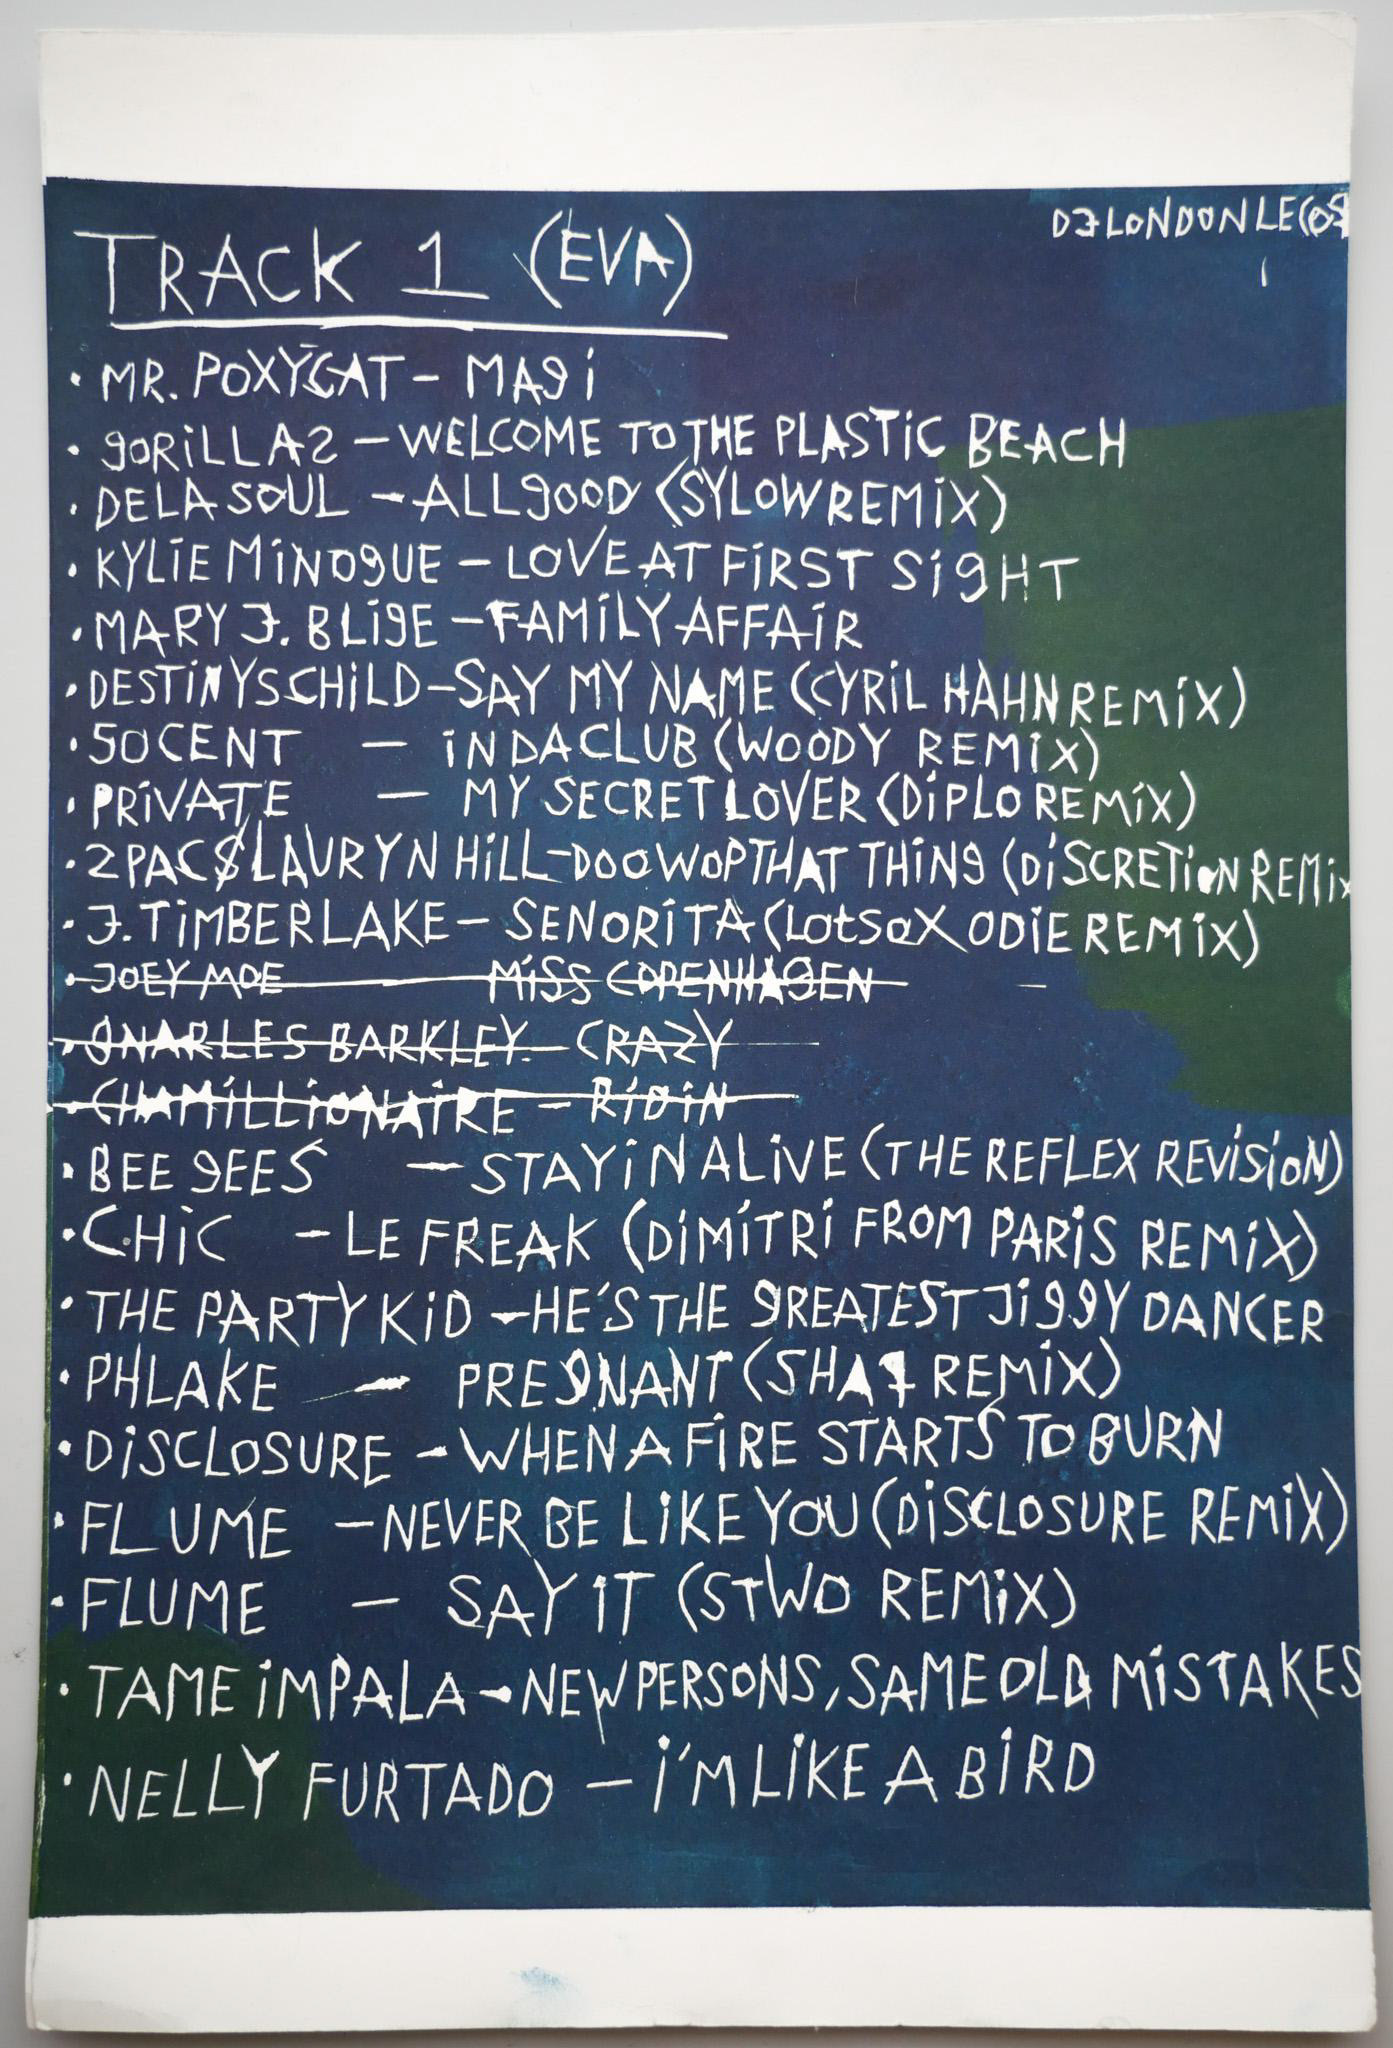 DJ LONDON LECOS
TRACK 1 (EVA)
• MR. POXYCAT – MAgi
• gORiLLAS – WELCOME TO THE PLASTiC BEACH
• DE LA SOUL – ALL gOOD (SYLOW REMiX)
• KYLiE MiNOgUE – LOVE AT FiRST SigHT
• MARY J. BLigE – FAMiLY AFFAiR
• DESTiNYS CHiLD – SAY MY NAME (CYRiL HAHN REMiX)
• 50 CENT – iN DA CLUB (WOODY REMiX)
• PRiVATE – MY SECRET LOVER (DiPLO REMiX)
• 2PAC & LAURYN HiLL – DOO WOP THAT THiNg (DiSCRETiON REMiX
• J. TiMBERLAKE – SENORiTA (LOtSOX ODiE REMiX)
• JOEY MOE MiSS COPENHAgEN –
• gNARLES BARKLEY – CRAZY
• CHAMiLLiONAiRE – RiDiN
• BEE gEES – STAYiN ALiVE (THE REFLEX REViSiON)
• CHiC – LE FREAK (DiMiTRi FROM PARiS REMiX)
• THE PARTY KiD – HE'S THE gREATEST JiggY DANCER
• PHLAKE – PREgNANT (SHAq REMiX)
• DiSCLOSURE – WHEN A FiRE STARTS TO BURN
• FLUME – NEVER BE LiKE YOU (DiSCLOSURE REMiX)
• FLUME – SAY iT (STWO REMiX)
• TAME iMPALA – NEW PERSONS, SAME OLD MiSTAKES
• NELLY FURTADO – i'M LiKE A BiRD